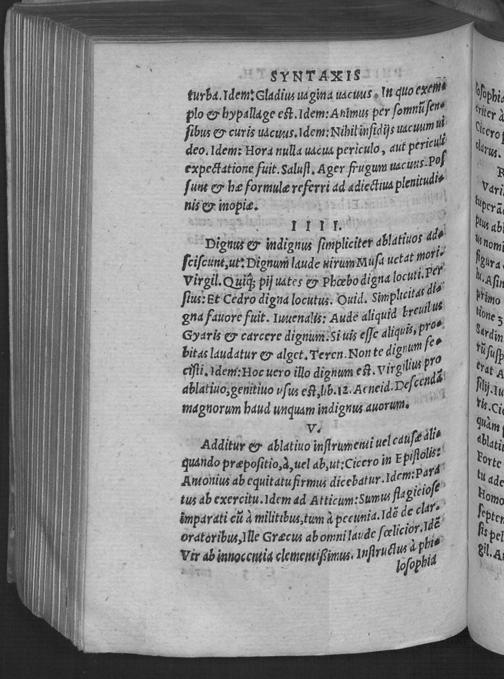 SYNTAXIS
turba. Idem: Gladius uagina uacuus. In quo exem⸗
plo & hypallage est. Idem: Animus per somnũ sen⸗
sibus & curis uacuus. Idem: Nihil insidijs uacuum ui
deo. Idem: Hora nulla uacua periculo, aut periculi
expectatione fuit. Salust. Ager frugum uacuus. Pos
sunt & hæ formulæ referri ad adiectiua plenitudi⸗
nis & inopiæ.
IIII.
Dignus & indignus simpliciter ablatiuos ad⸗
sciscunt, ut: Dignum laude uirum Musa uetat mori.
Virgil. Quiq; pij uates & Phœbo digna locuti. Per
sius: Et Cedro digna locutus. Ouid. Simplicitas di⸗
gna fauore fuit. Iuuenalis: Aude aliquid breuibus
Gyaris & carcere dignum. Si uis esse aliquis, pro⸗
bitas laudatur & alget. Teren. Non te dignum fe⸗
cisti. Idem: Hoc uero illo dignum est. Virgilius pro
ablatiuo, genitiuo usus est, lib. 12. Aeneid. Descendã
magnorum haud unquam indignus auorum.
V.
Additur & ablatiuo instrumenti uel causæ ali⸗
quando præpositio, à, uel ab, ut: Cicero in Epistolis:
Antonius ab equitatu firmus dicebatur. Idem: Para
tus ab exercitu. Idem ad Atticum: Sumus flagiciose
imparati cũ à militibus, tum à pecunia. Idẽ de clar.
oratoribus, Ille Græcus ab omni laude fœlicior. Idẽ
Vir ab innocentia clementissimus. Instructus à phi⸗
losophia
losophia
eriter à
Cicero p
clarus.
Vari